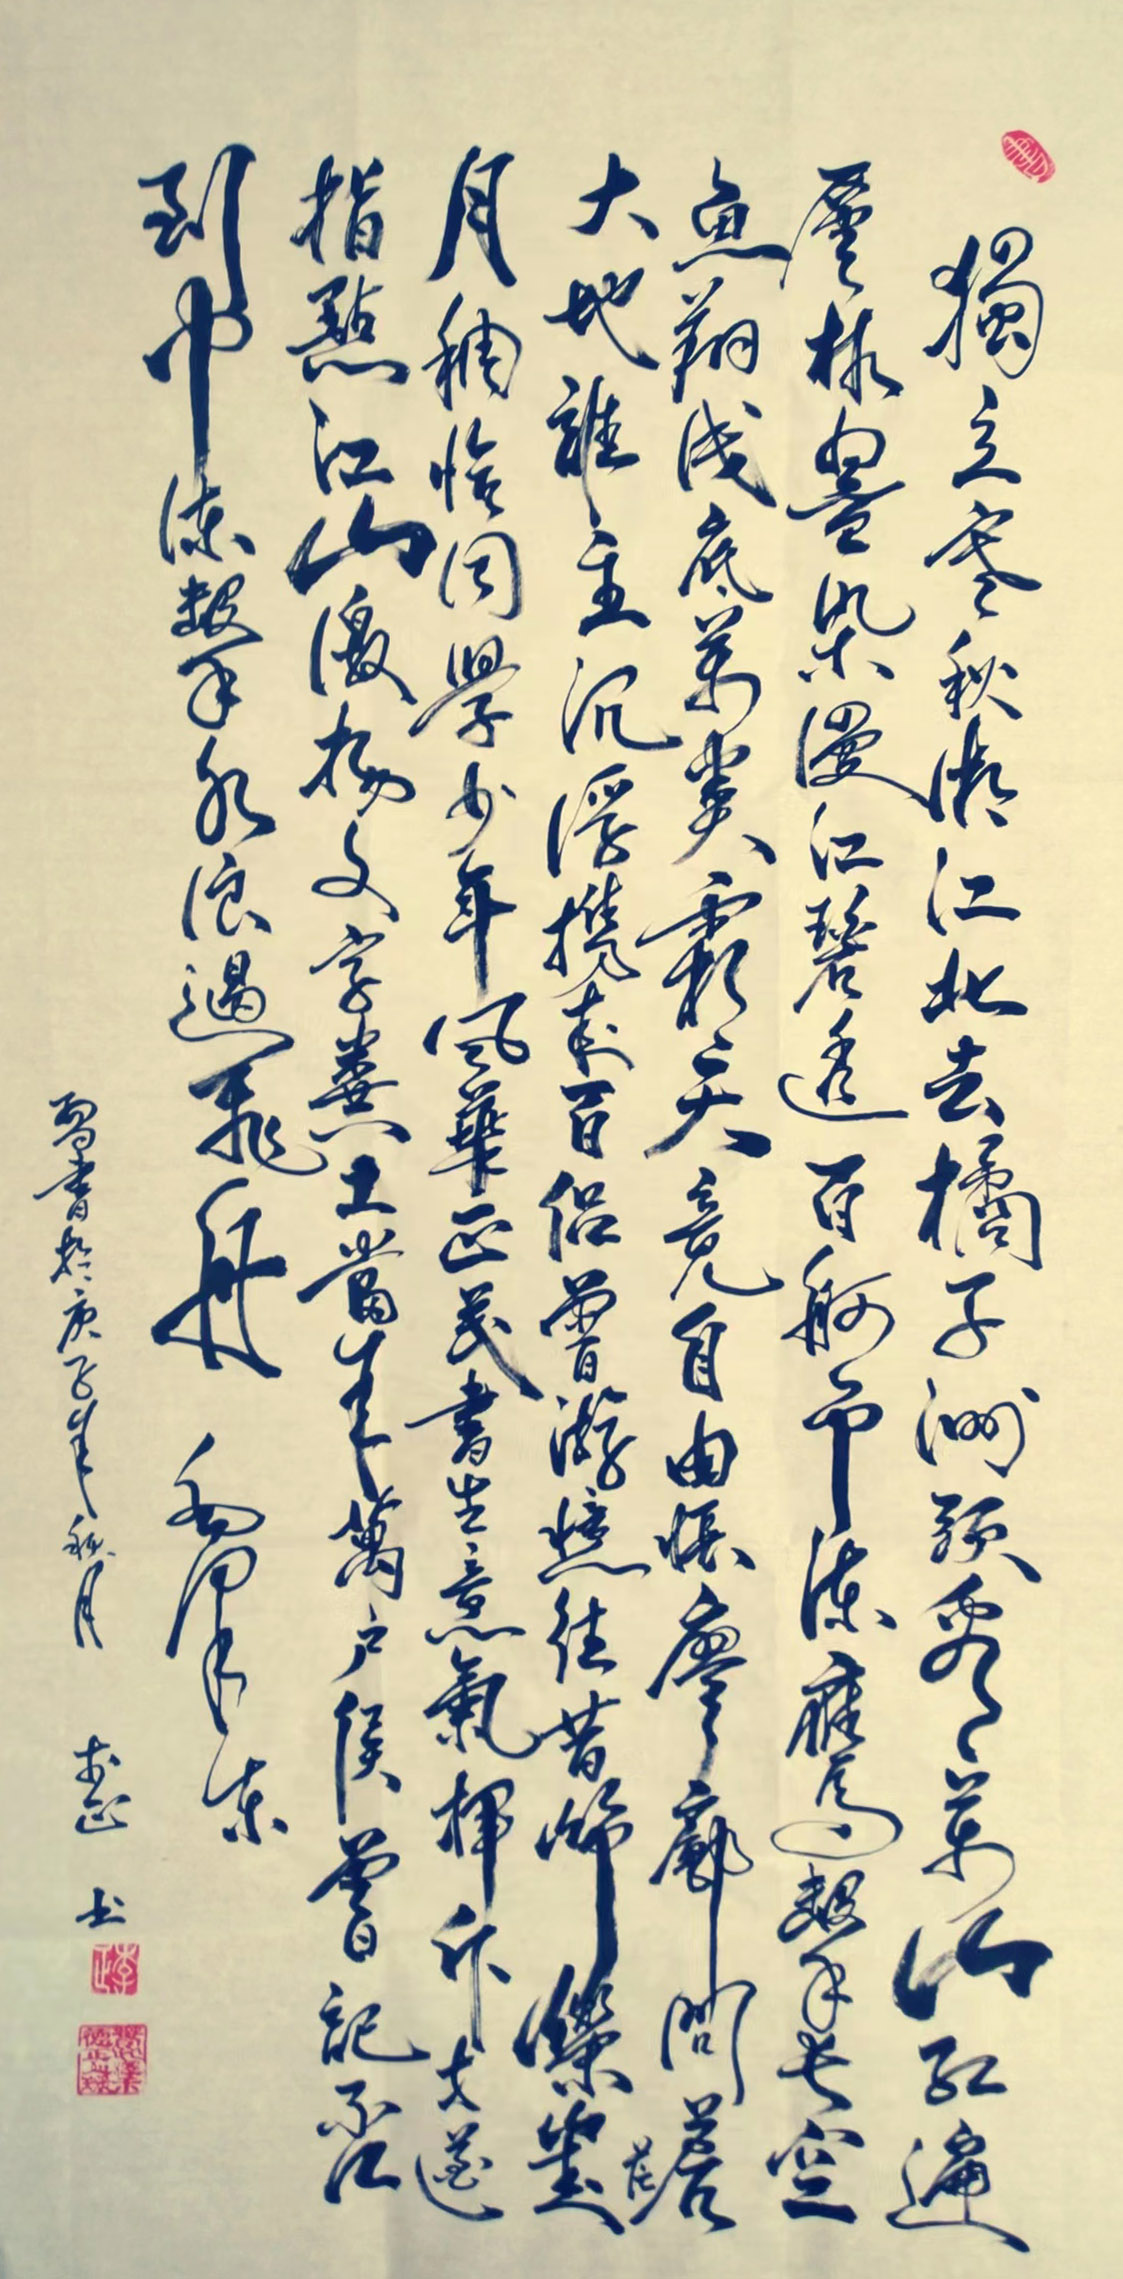 獨立寒秋湘江北去橘子洲頭看萬山紅遍
層林盡染漫江碧透百舸爭流鷹擊長空
魚翔淺底萬類霜天競自由悵寥廓問蒼茫
大地誰主沉浮攜來百侶曾游憶往昔崢嶸歲
月稠恰同學少年風華正茂書生意氣揮斥方遒
指點江山激揚文字糞土當年萬戶侯曾記否
到中流擊水浪遏飛舟 毛澤東
書於庚子年秋月 李正 书